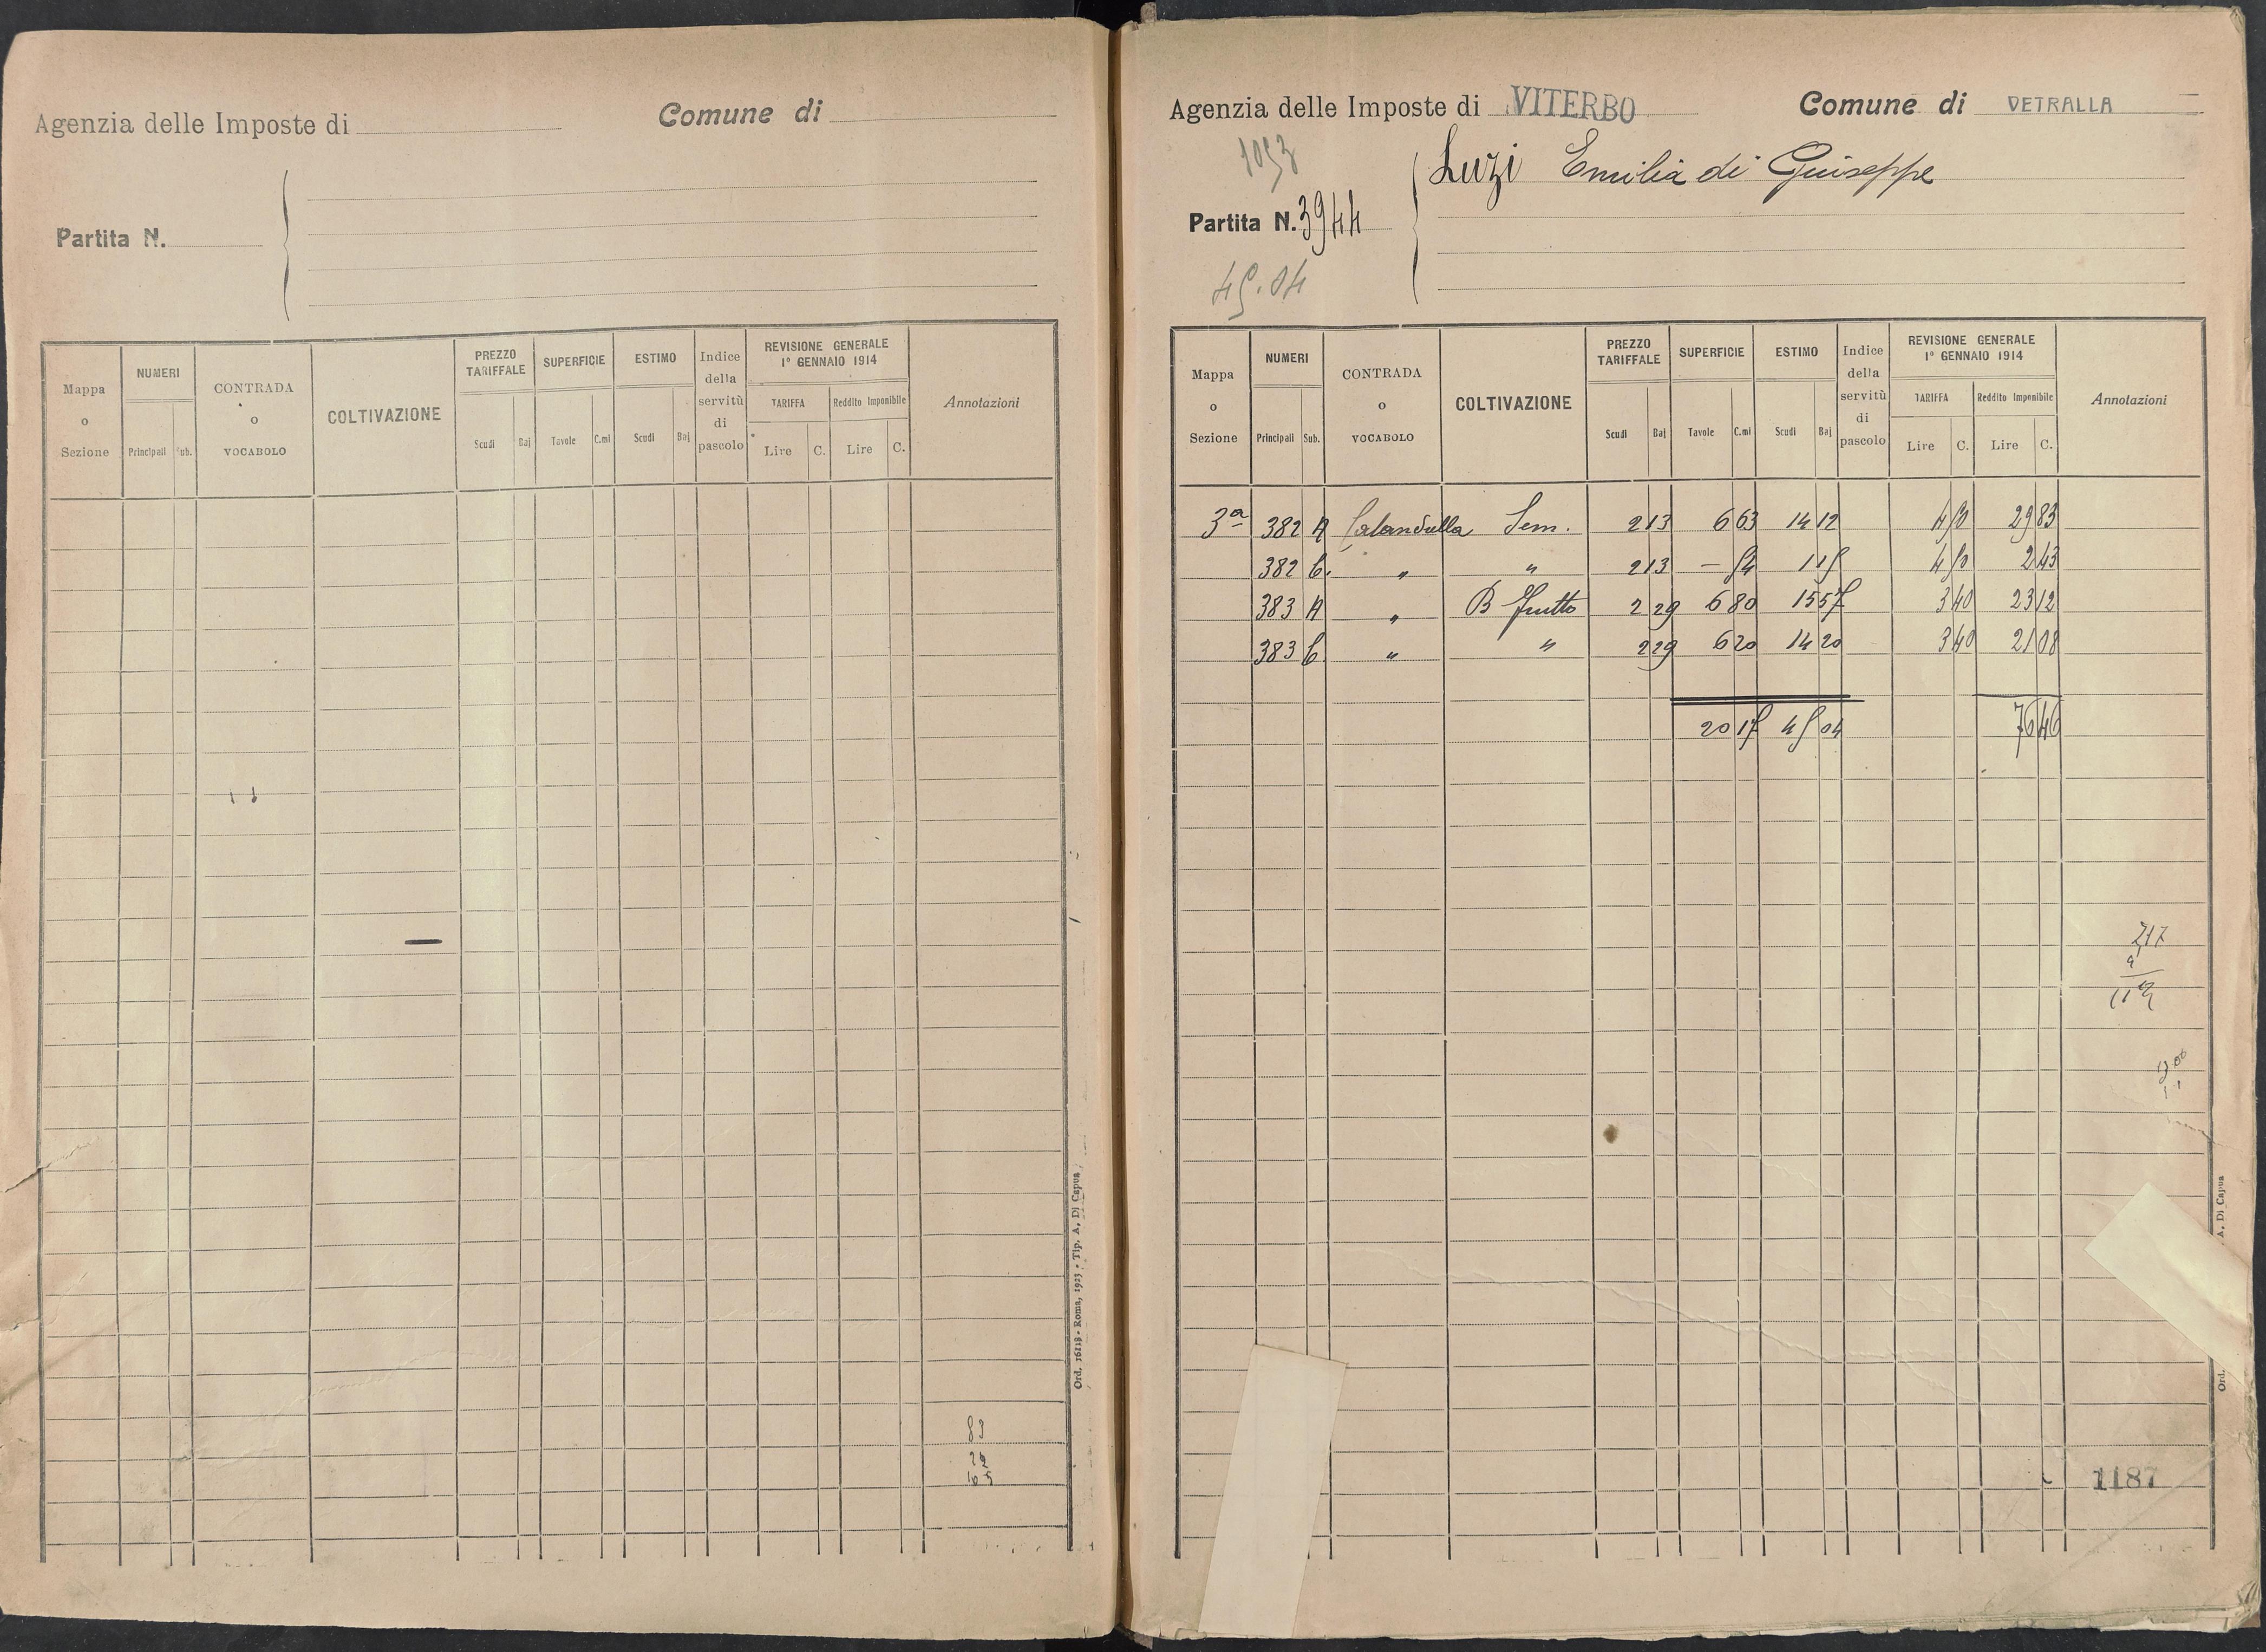 Agenzia delle Imposte di
Comune di
Partita N.
Mappa o Sezione
NUMERI
Principali
Sub.
CONTRADA o VOCABOLO
COLTIVAZIONE
PREZZO TARIFFALE
Scudi Baj
SUPERFICIE
Tavole C.mi
ESTIMO
Scudi Baj
Indice della servitù di pascolo
REVISIONE GENERALE
1° GENNAIO 1914
TARIFFA
Lire C.
Reddito Imponibile
Lire C.
Annotazioni
83
22
105
Ord. 16118 - Roma, 1923 - Tip. A. Di Capua
Agenzia delle Imposte di VITERBO
Comune di VETRALLA
Luzi Emilia di Guiseppe
Partita N. 3944
45.04
Mappa o Sezione
NUMERI
Principali Sub.
CONTRADA o VOCABOLO
COLTIVAZIONE
PREZZO TARIFFALE
Scudi Baj
SUPERFICIE
Tavole C.mi
ESTIMO
Scudi Baj
Indice della servitù di pascolo
REVISIONE GENERALE
1° GENNAIO 1914
TARIFFA
Lire C.
Reddito Imponibile
Lire C.
Annotazioni
3ª 382 A Calandrella Sem. 2 13 6 63 14 12 4 50 29 83
382 C. " " 2 13 — 54 1 15 4 50 2 43
383 A " B frutto 2 29 6 80 15 57 3 40 23 12
383 C " " 2 29 6 20 14 20 3 40 21 08
20 17 45 04 76 46
217
1187
Ord.
A. Di Capua